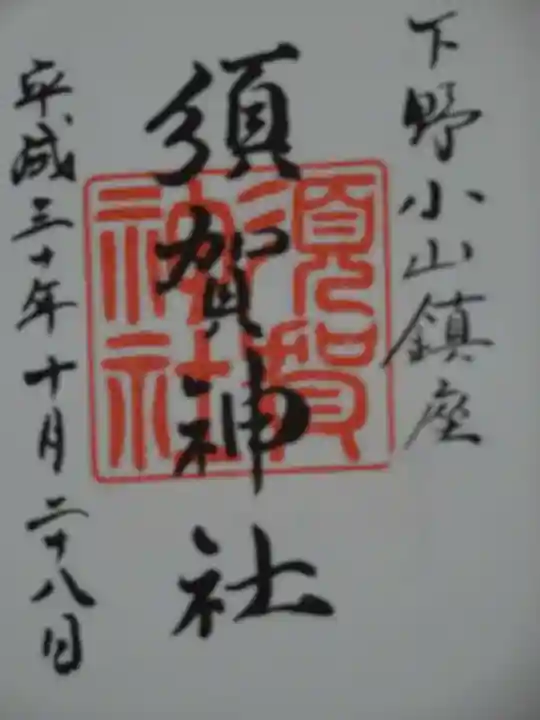 下野小山鎮座
須賀神社
須賀神社
平成三十年十月二十八日